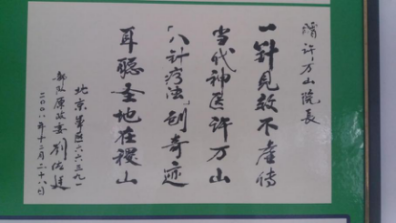 赠许万山院長
一针見效不虚传
当代神医许万山
“八针疗法”创奇迹
耳聪圣地在稷山
北京軍区六六三九一
部队原政委劉佑廷
二〇〇八年十二月二十八日